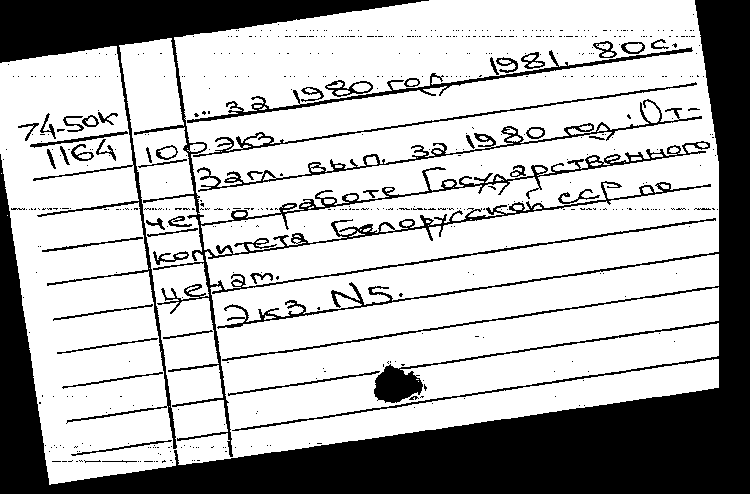 ... за 1980 год 1981. 80с.
74-50к
1164 100экз.
Загл. вып. за 1980 год: От-
чет о работе Государственного
комитета Белорусской ССР по
ценам.
Экз. N5.